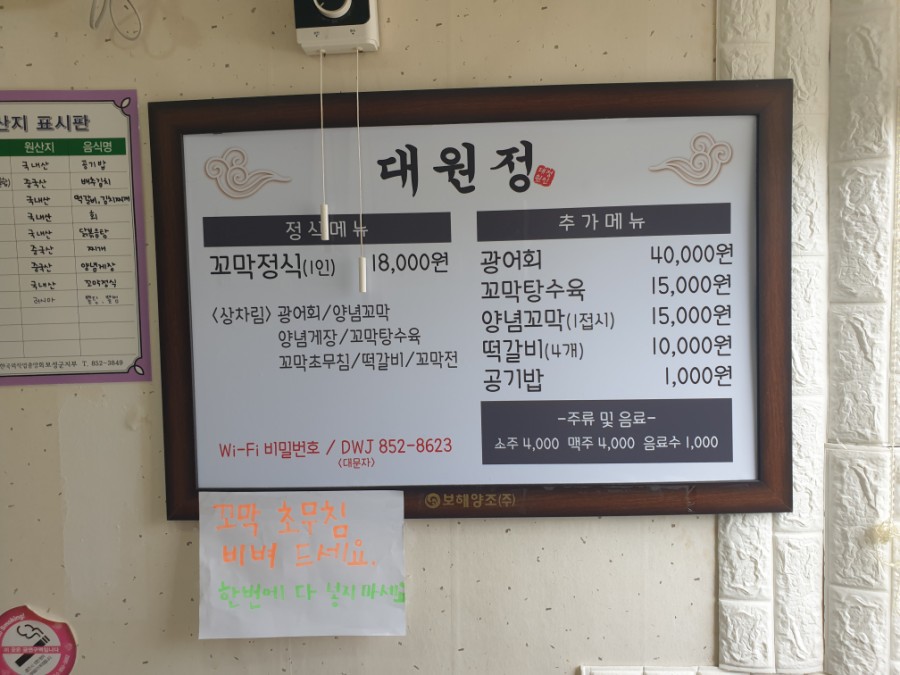 산지 표시판
원산지 음식명
국내산 공기밥
중국산 배추김치
국내산 떡갈비, 김치찌개
국내산 회
국내산 닭볶음탕
중국산 찌개
중국산 양념게장
국내산 꼬막정식
러시아
한국외식업중앙회보성군지부 T. 852-3849
대원정
정식메뉴
꼬막정식(1인) 18,000원
<상차림> 광어회/양념꼬막
양념게장/꼬막탕수육
꼬막초무침/떡갈비/꼬막전
Wi-Fi 비밀번호 / DWJ 852-8623
<대문자>
추가메뉴
광어회 40,000원
꼬막탕수육 15,000원
양념꼬막(1접시) 15,000원
떡갈비(4개) 10,000원
공기밥 1,000원
-주류 및 음료-
소주 4,000 맥주 4,000 음료수 1,000
보해양조(주)
꼬막 초무침
비벼 드세요.
한번에 다 넣지 마세요